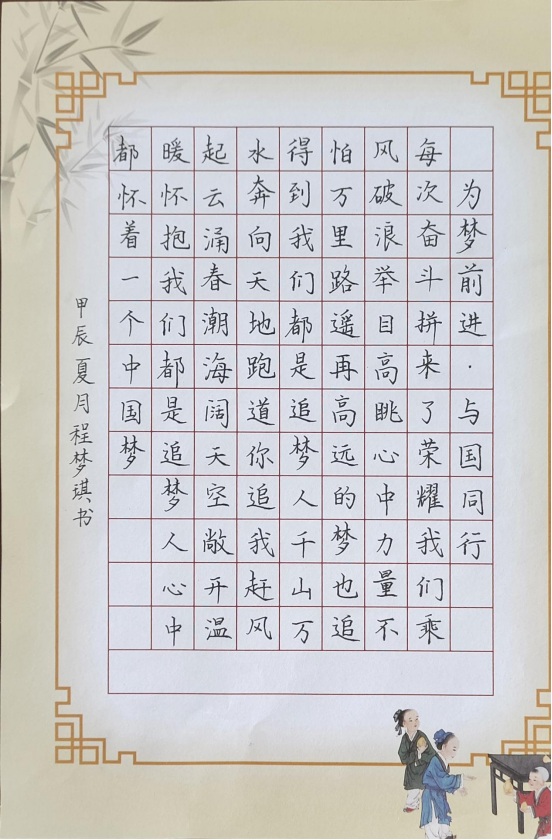 为梦前进·与国同行
每次奋斗拼来了荣耀我们乘
风破浪举目高眺心中力量不
怕万里路遥再高远的梦也追
得到我们都是追梦人千山万
水奔向天地跑道你追我赶风
起云涌春潮海阔天空敞开温
暖怀抱我们都是追梦人心中
都怀着一个中国梦
甲辰夏月程梦琪书